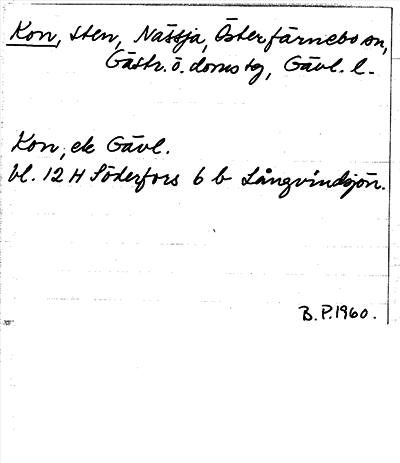 Kon, sten, Nässja, Österfärnebo sn,
Gästr. ö. doms tg, Gävl. l.
Kon, ek Gävl.
bl. 12 H Söderfors 6 b Långvindsjön.
B.P. 1960.